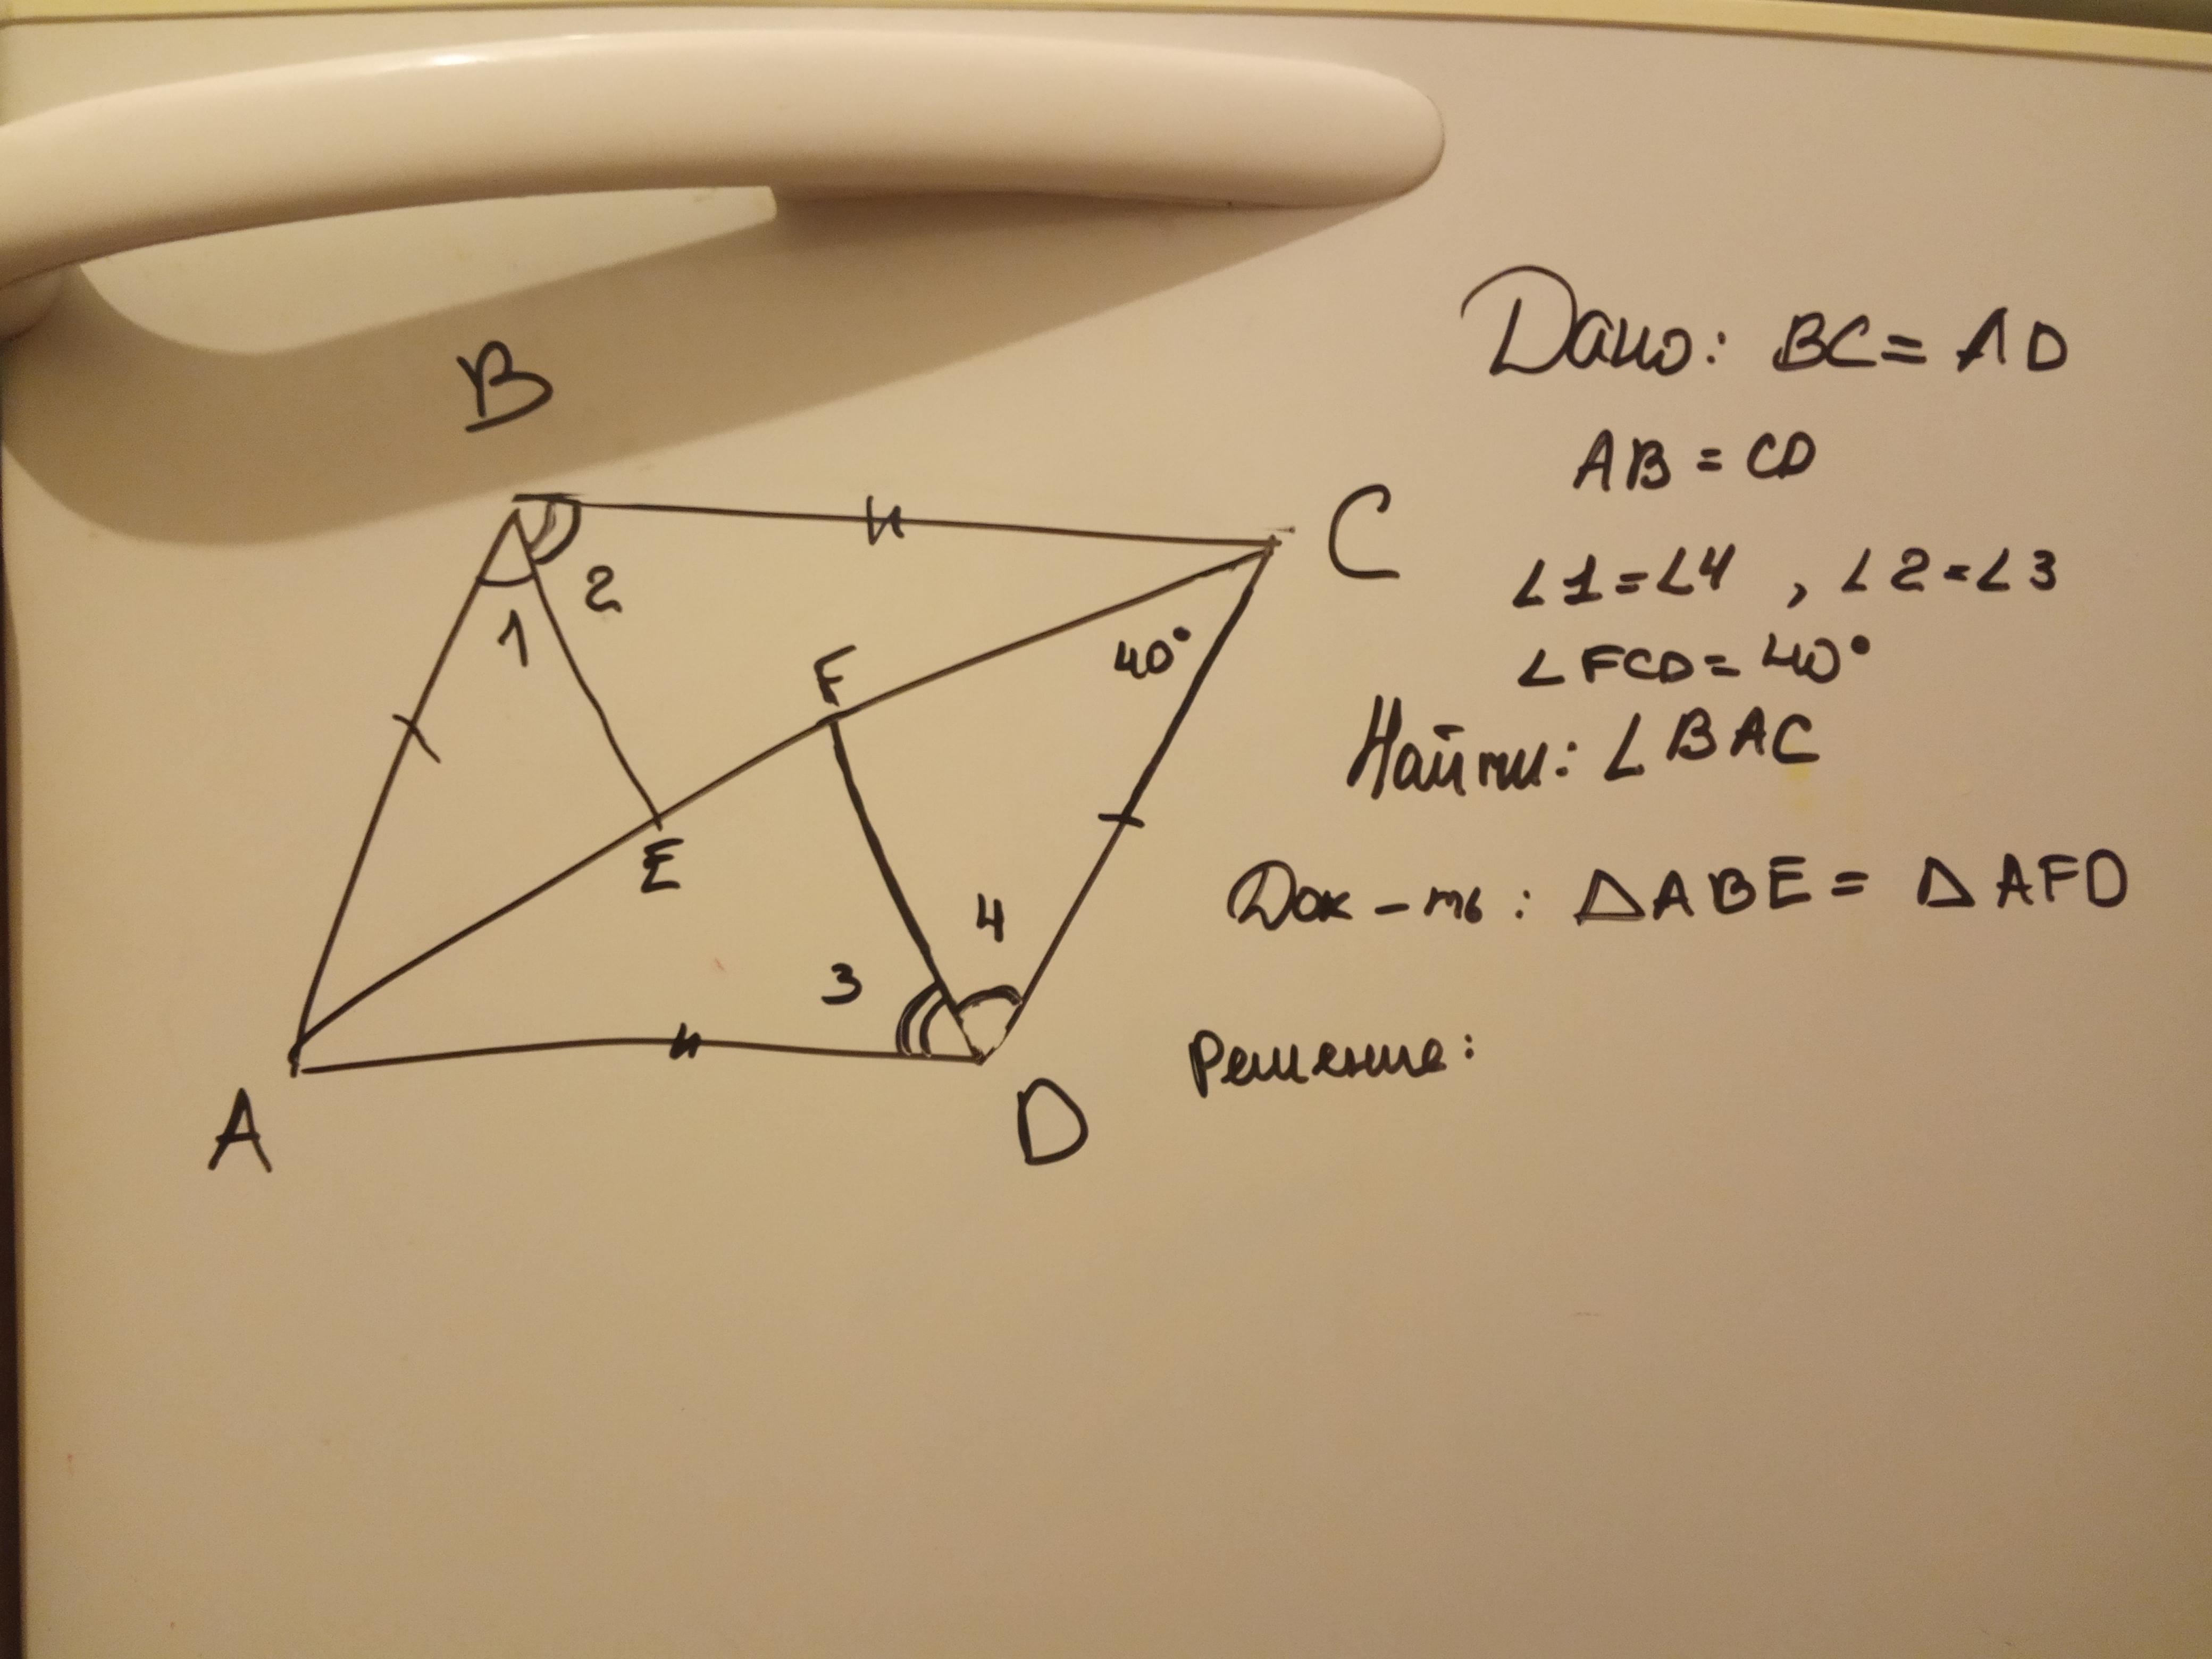 B
C
2
1
F
40°
E
4
3
A
D
Дано: BC = AD
AB = CD
∠1 = ∠4 , ∠2 = ∠3
∠FCD = 40°
Найти: ∠BAC
Док-ть: △ABE = △AFD
Решение: